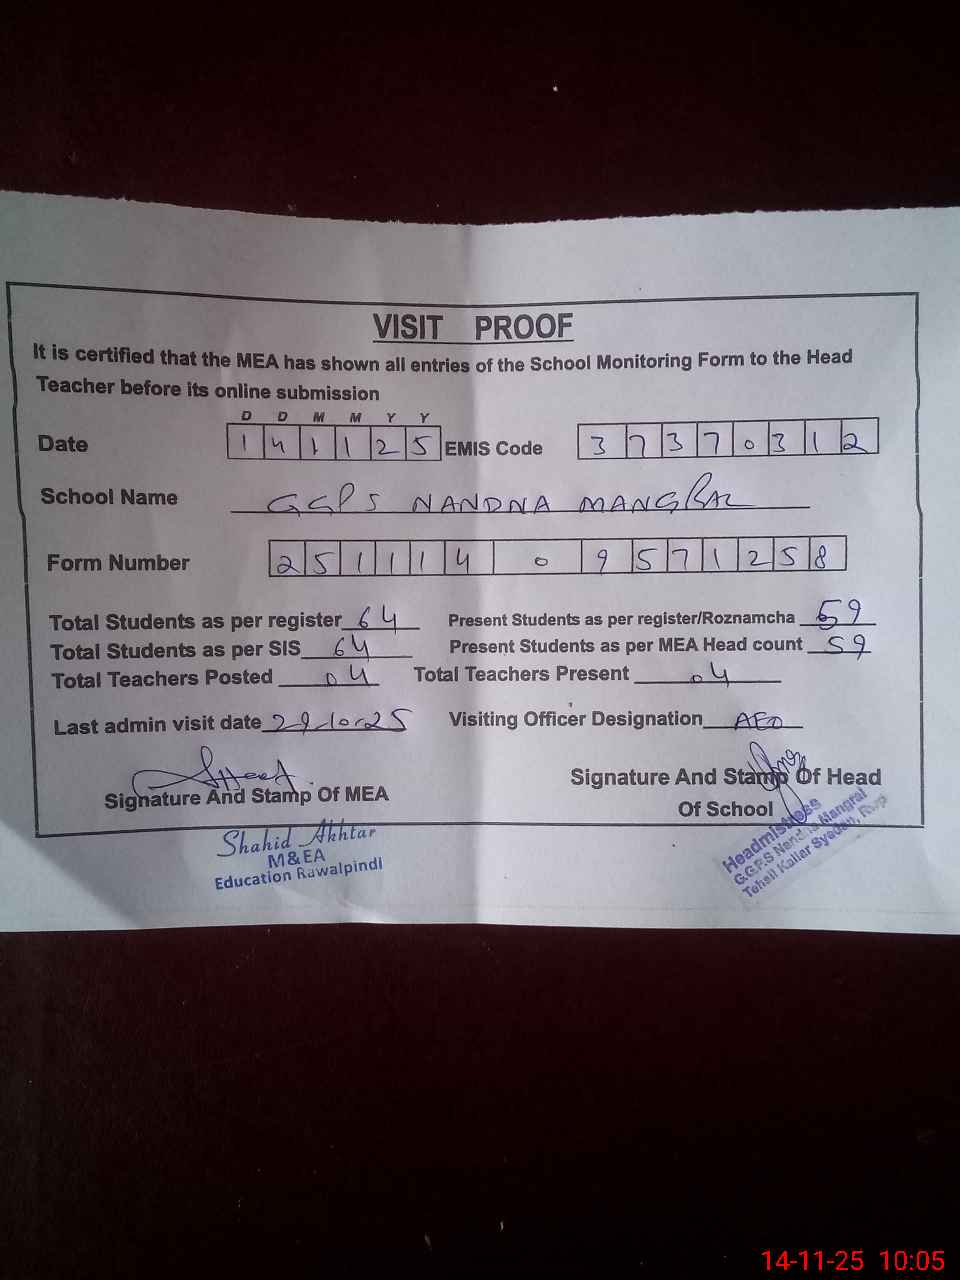 VISIT PROOF
It is certified that the MEA has shown all entries of the School Monitoring Form to the Head
Teacher before its online submission
D D M M Y Y
Date 1 4 1 1 2 5 EMIS Code 3 7 3 7 0 3 1 2
School Name GGPS NANDNA MANGRAL
Form Number 2 5 1 1 1 4 0 9 5 7 1 2 5 8
Total Students as per register 64 Present Students as per register/Roznamcha 59
Total Students as per SIS 64 Present Students as per MEA Head count 59
Total Teachers Posted 04 Total Teachers Present 04
Last admin visit date 29-10-25 Visiting Officer Designation AEO
Signature And Stamp Of MEA Signature And Stamp Of Head
Of School
Shahid Akhtar
M&EA
Education Rawalpindi
Headmistress
G.G.P.S Nandna Mangral
Tehsil Kallar Syedan, Rwp
14-11-25 10:05